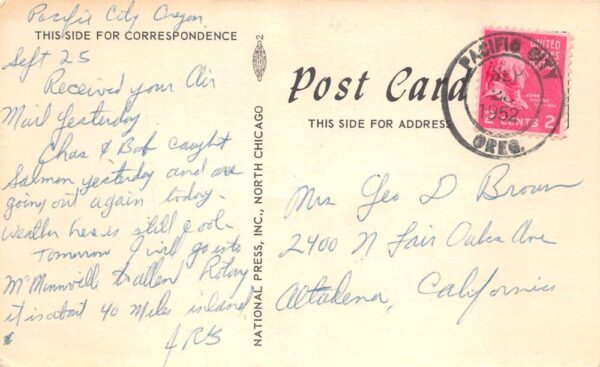 Pacific City Oregon
THIS SIDE FOR CORRESPONDENCE
Sept 25
Received your Air
Mail yesterday.
Chas & Bob caught
Salmon yesterday and are
going out again today.
Weather here is still cool.
Tomorrow I will go into
McMinnville to attend Rotary
it is about 40 Mile inland
NATIONAL PRESS, INC., NORTH CHICAGO
Post Card
THIS SIDE FOR ADDRESS
UNITED STATES
JOHN ADAMS
2 CENTS 2
PACIFIC CITY
SEP
1952
OREG.
Mrs Geo D Brown
2400 N Fair Oaks Ave
Altadena, California